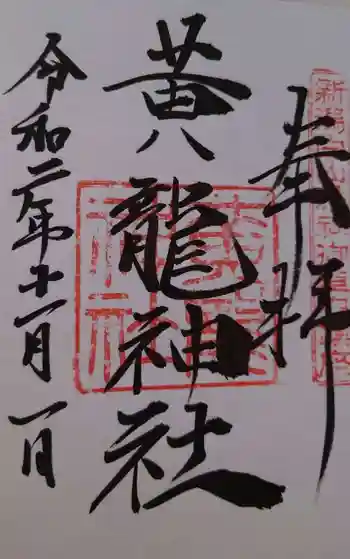 奉拝
黄龍神社
令和二年十一月一日